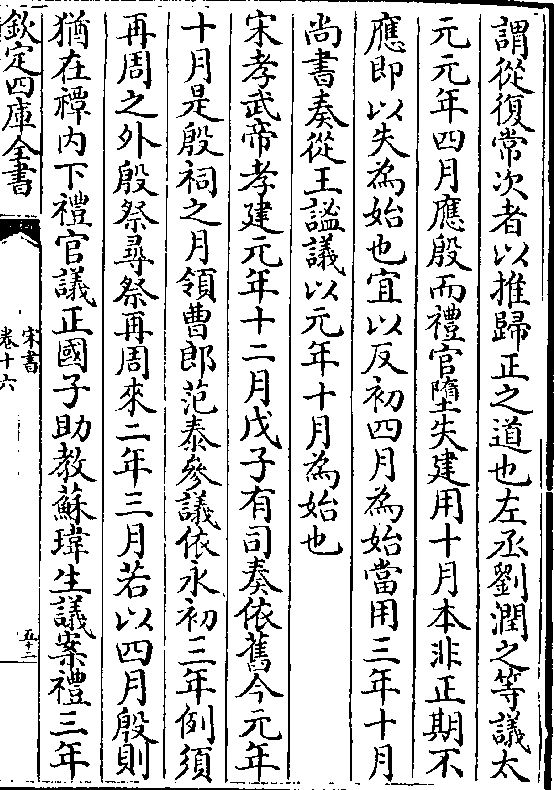 謂從復常次者以推歸正之道也左丞劉潤之等議太
元元年四月應殷而禮官墮失建用十月本非正期不
應即以失為始也宜以反初四月為始當用三年十月
尚書奏從王謐議以元年十月為始也
宋孝武帝孝建元年十二月戊子有司奏依舊今元年
十月是殷祠之月領曹郎范泰參議依永初三年例須
再周之外殷祭尋祭再周來二年三月若以四月殷則
猶在禫內下禮官議正國子助教蘇瑋生議案禮三年
欽定四庫全書
宋書
卷十六
五十二